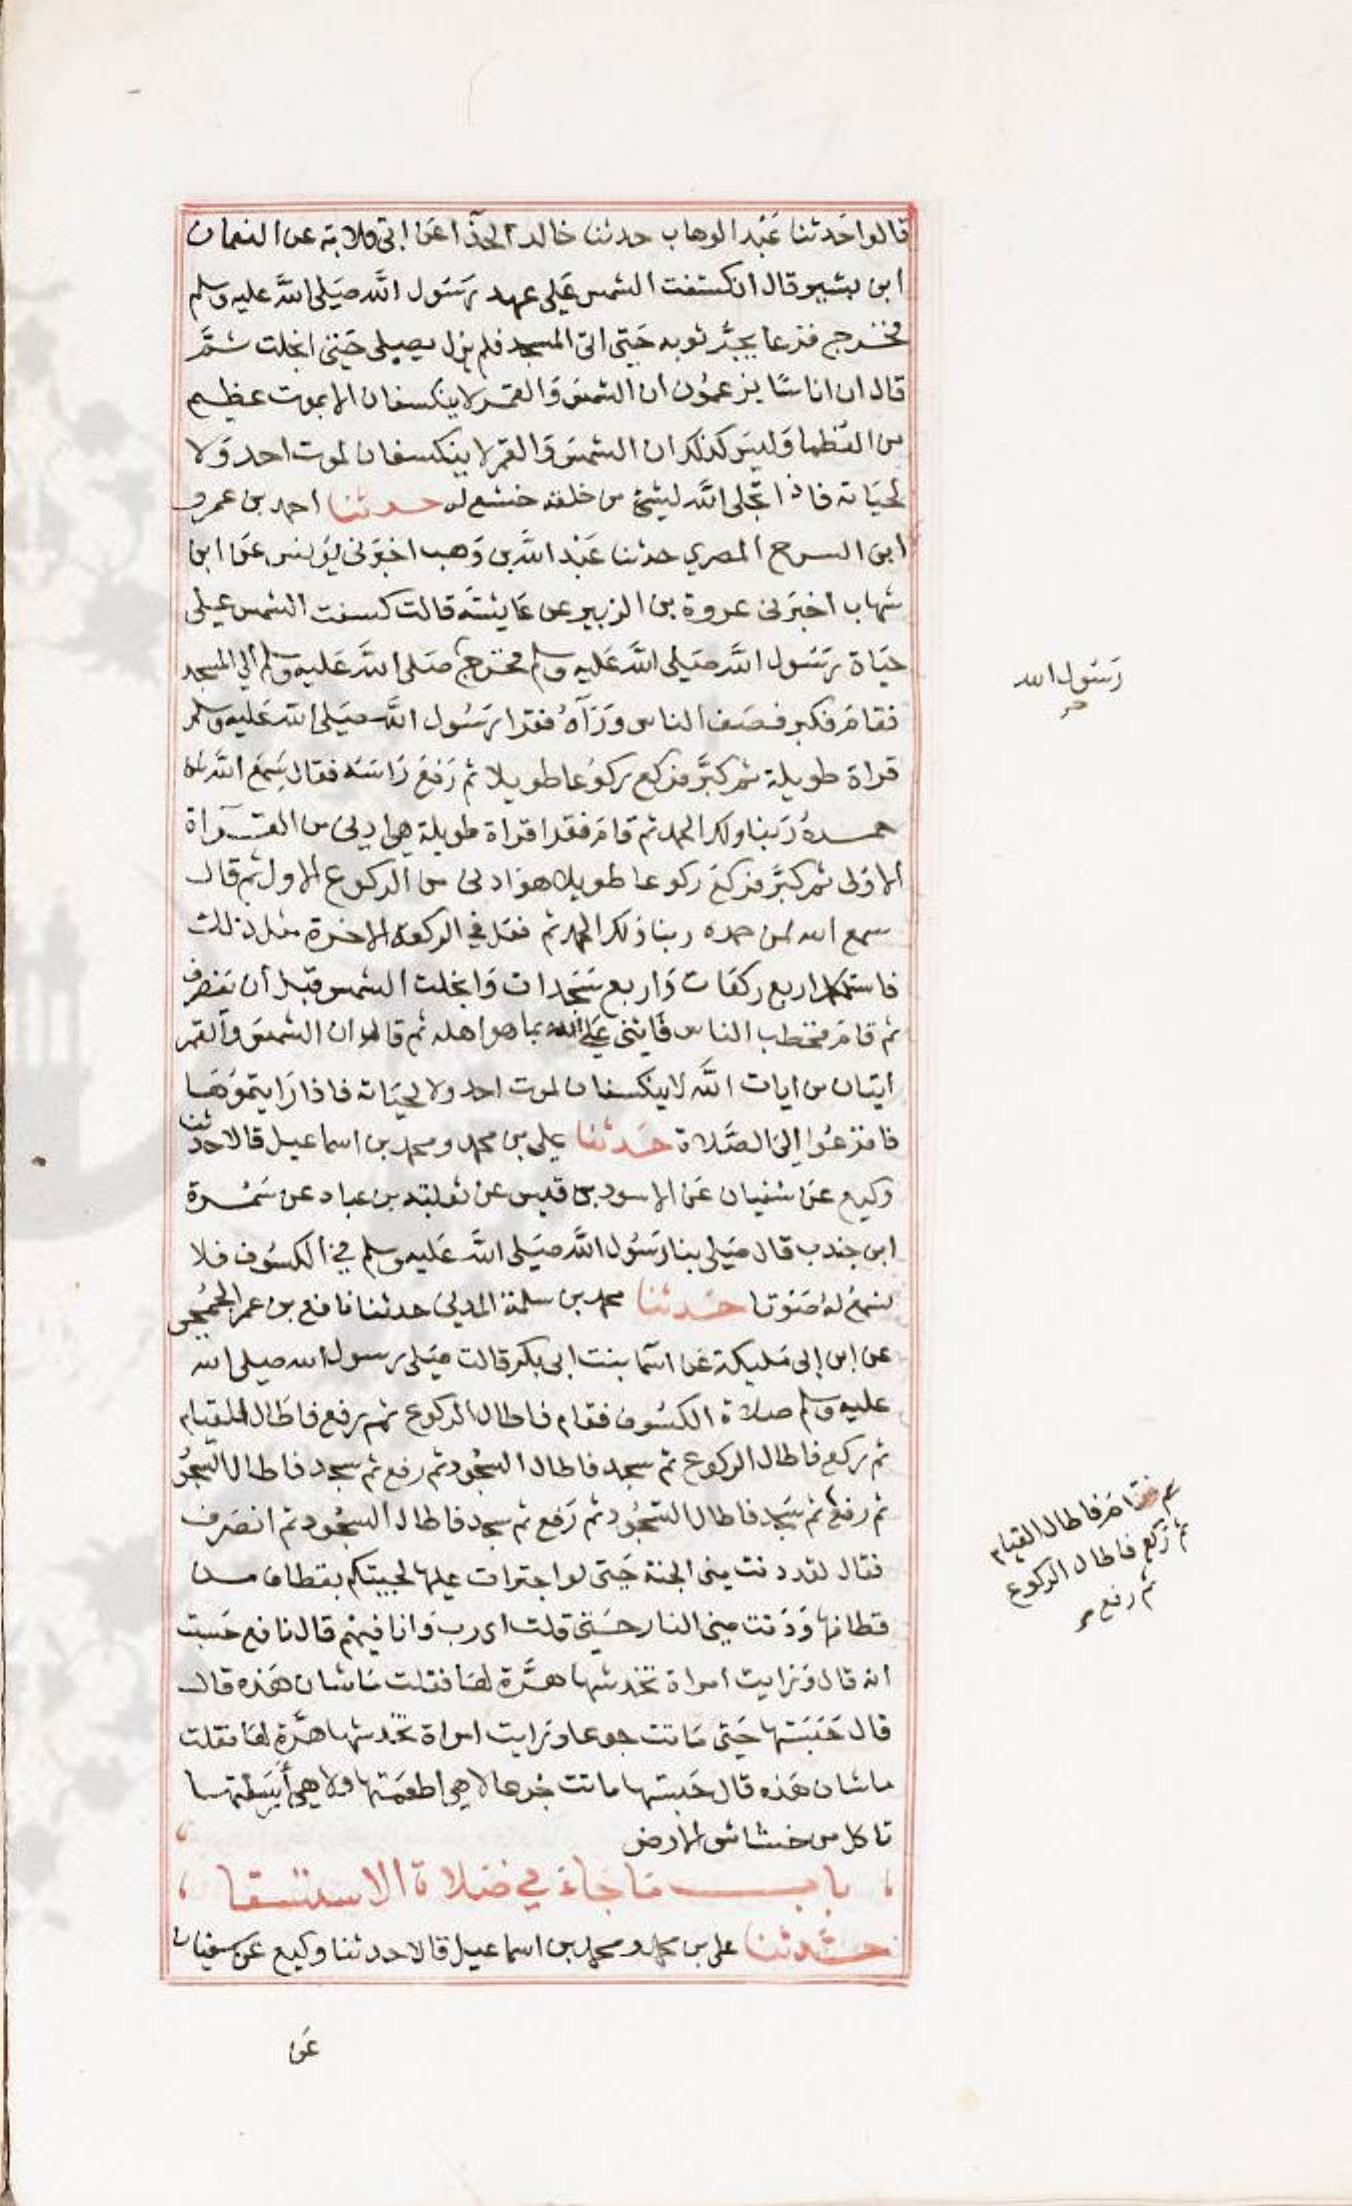 قالوا حدثنا عبد الوهاب حدثنا خالد الحذا عن ابي قلابة عن النعمان
ابن بشير قال انكسفت الشمس على عهد رسول الله صلى الله عليه وسلم
فخرج فزعا يجر ثوبه حتى اتى المسجد فلم يزل يصلي حتى انجلت ثم
قال ان اناسا يزعمون ان الشمس والقمر لا ينكسفان الا بموت عظيم
من العظما وليس كذلك ان الشمس والقمر لا ينكسفان لموت احد ولا
لحياته فاذا تجلى الله ليشئ من خلقه خشع له حدثنا احمد بن عمرو
ابن السرح المصري حدثنا عبد الله بن وهب اخبرني يونس عن ابن
شهاب اخبرني عروة بن الزبير عن عايشة قالت كسفت الشمس على
حياة رسول الله صلى الله عليه وسلم فخرج صلى الله عليه وسلم الي المسجد
رسول الله
صح
فقام فكبر فصف الناس ورآه فقرا رسول الله صلى الله عليه وسلم
قراة طويلة ثم كبر فركع ركوعا طويلا ثم رفع راسه فقال سمع الله لمن
حمده ربنا ولك الحمد ثم قام فقرا قراة طويلة هي ادنى من القراة
الاولى ثم كبر فركع ركوعا طويلا هو ادنى من الركوع الاول ثم قال
سمع الله لمن حمده ربنا ولك الحمد ثم فعل في الركعة الاخرة مثل ذلك
فاستكمل اربع ركعات واربع سجدات وانجلت الشمس قبل أن ينصرف
ثم قام فخطب الناس فاثنى على الله بما هو اهله ثم قال ان الشمس والقمر
ايتان من ايات الله لا ينكسفان لموت احد ولا لحياته فاذا رايتموها
فافزعوا إلى الصلاة حدثنا علي بن محمد ومحمد بن اسماعيل قالا حدثنا
وكيع عن سفيان عن الاسود بن قيس عن ثعلبة بن عباد عن سمرة
ابن جندب قال صلى بنا رسول الله صلى الله عليه وسلم في الكسوف فلا
نسمع له صوتا حدثنا محمد بن سلمة المدني حدثنا نافع بن عمر الجمحي
عن ابن ابي مليكة عن اسما بنت ابي بكر قالت صلى رسول الله صلى الله
عليه وسلم صلاة الكسوف فقام فاطال الركوع ثم رفع فاطال القيام
ثم ركع فاطال الركوع ثم سجد فاطال السجود ثم رفع ثم سجد فاطال السجو
ثم رفع ثم سجد فاطال السجود ثم رفع ثم سجد فاطال السجود ثم انصرف
فقام فاطال القيام
ثم ركع فاطال الركوع
ثم رفع صح
فقال لقد دنت مني الجنة حتى لو اجترات عليها لجيتكم بقطاف من
قطافها ودنت مني النار حتى قلت اي رب وانا فيهم قال نافع حسبت
انه قال ورايت امراة تخدشها هرة لها فقلت ما شان هذه قال
قال حبستها حتى ماتت جوعا ورايت امراة تخدشها هرة لها فقلت
ما شان هذه قال حبستها ماتت جوعا لا هي اطعمتها ولا هي أرسلتها
تاكل من خشاش الارض
باب ما جاء في صلاة الاستسقا
حدثنا علي بن محمد ومحمد بن اسماعيل قالا حدثنا وكيع عن سفيان
عن